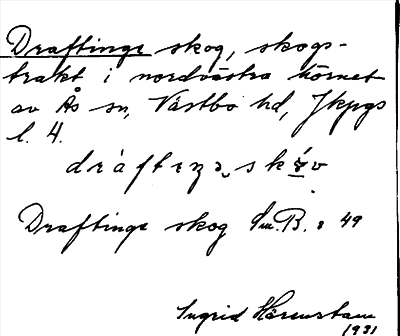 Draftinge skog, skogs-
trakt i nordvästra hörnet
av Ås sn, Västbo hd, Jkpgs
l. 4.
dráftıŋə skóv
Draftinge skog Sm.B. : 49
Ingrid Härenstam
1931